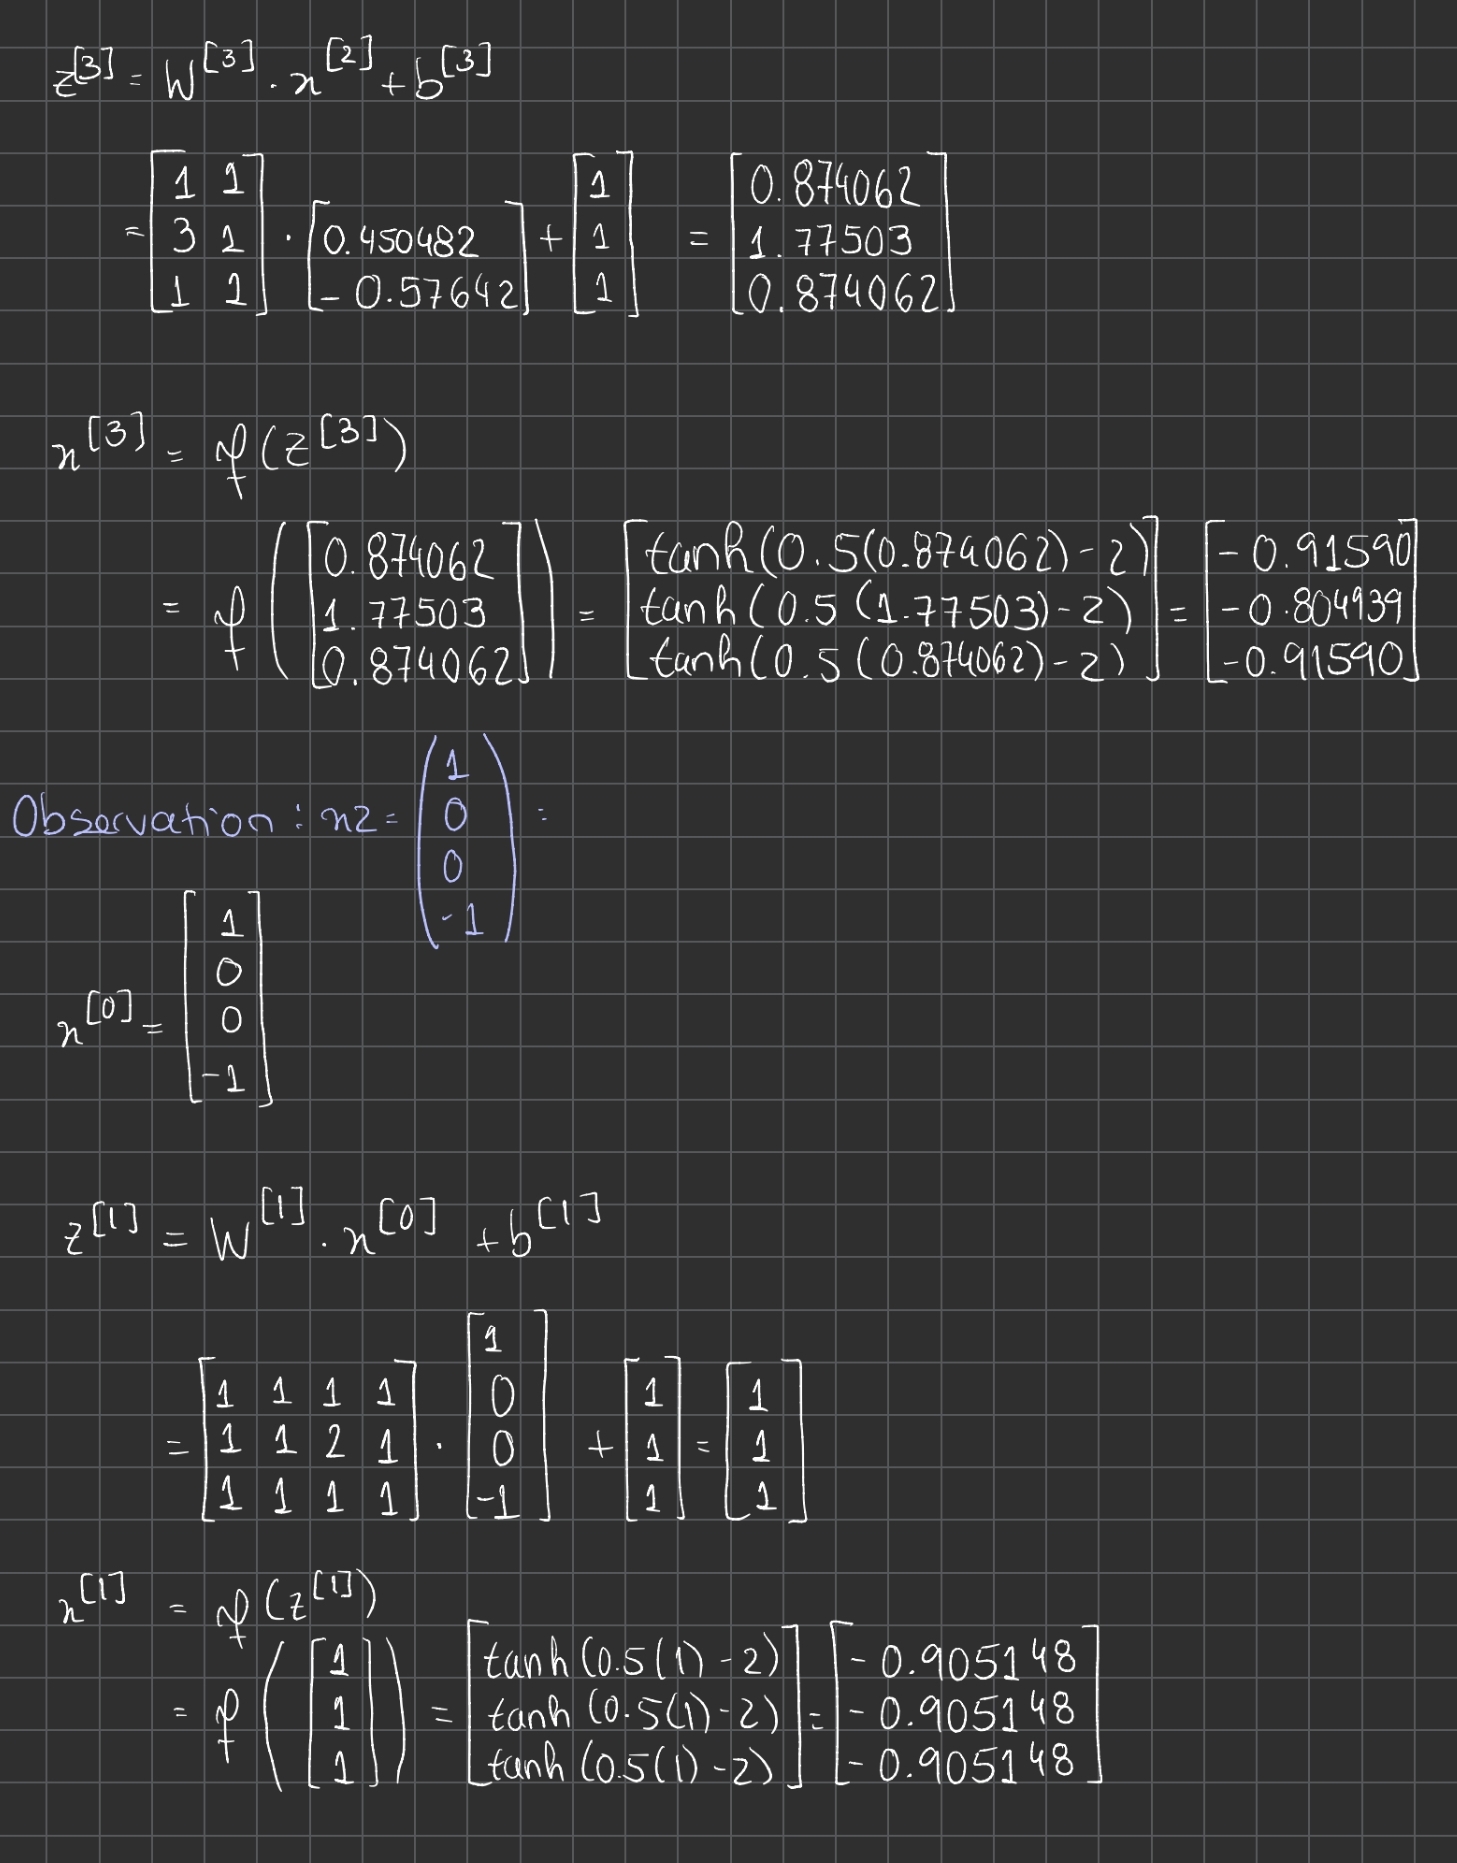 z[3] = W[3] . x[2] + b[3]
= [1 1; 3 1; 1 1] · [0.450482; -0.57642] + [1; 1; 1] = [0.874062; 1.77503; 0.874062]
x[3] = f(z[3])
= f([0.874062; 1.77503; 0.874062]) = [tanh(0.5(0.874062)-2); tanh(0.5(1.77503)-2); tanh(0.5(0.874062)-2)] = [-0.91590; -0.804939; -0.91590]
Observation: x2 = (1; 0; 0; -1) :
x[0] = [1; 0; 0; -1]
z[1] = W[1] . x[0] + b[1]
= [1 1 1 1; 1 1 2 1; 1 1 1 1] . [1; 0; 0; -1] + [1; 1; 1] = [1; 1; 1]
x[1] = f(z[1])
= f([1; 1; 1]) = [tanh(0.5(1)-2); tanh(0.5(1)-2); tanh(0.5(1)-2)] = [-0.905148; -0.905148; -0.905148]